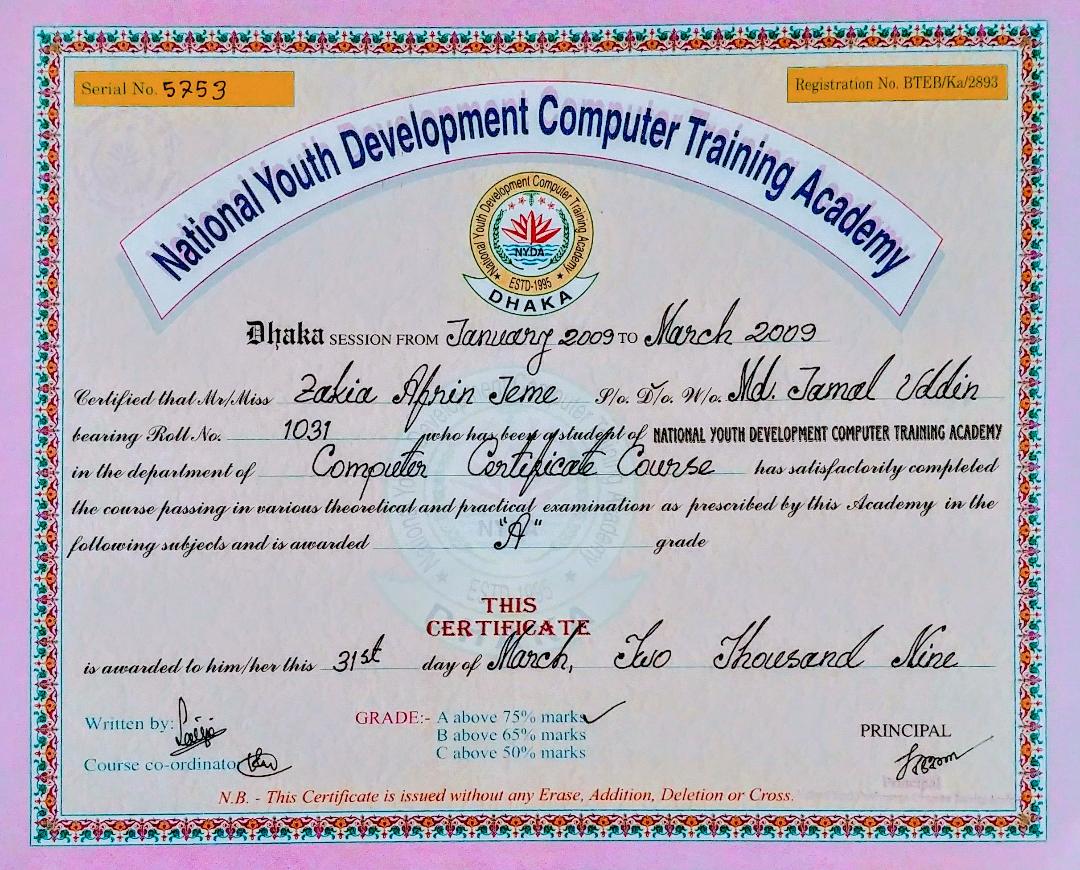 Serial No. 5753
Registration No. BTEB/Ka/2893
National Youth Development Computer Training Academy
National Youth Development Computer Training Academy
NYDA
ESTD-1995
DHAKA
Dhaka SESSION FROM January 2009 TO March 2009
Certified that Mr/Miss Zakia Afrin Jeme S/o. D/o. W/o. Md. Jamal Uddin
bearing Roll No. 1031 who has been a student of NATIONAL YOUTH DEVELOPMENT COMPUTER TRAINING ACADEMY
in the department of Computer Certificate Course has satisfactorily completed
the course passing in various theoretical and practical examination as prescribed by this Academy in the
following subjects and is awarded "A" grade
THIS
CERTIFICATE
is awarded to him/her this 31st day of March, Two Thousand Nine
Written by:
GRADE:- A above 75% marks ✓
B above 65% marks
C above 50% marks
PRINCIPAL
Course co-ordinator
Principal
N.B. - This Certificate is issued without any Erase, Addition, Deletion or Cross.